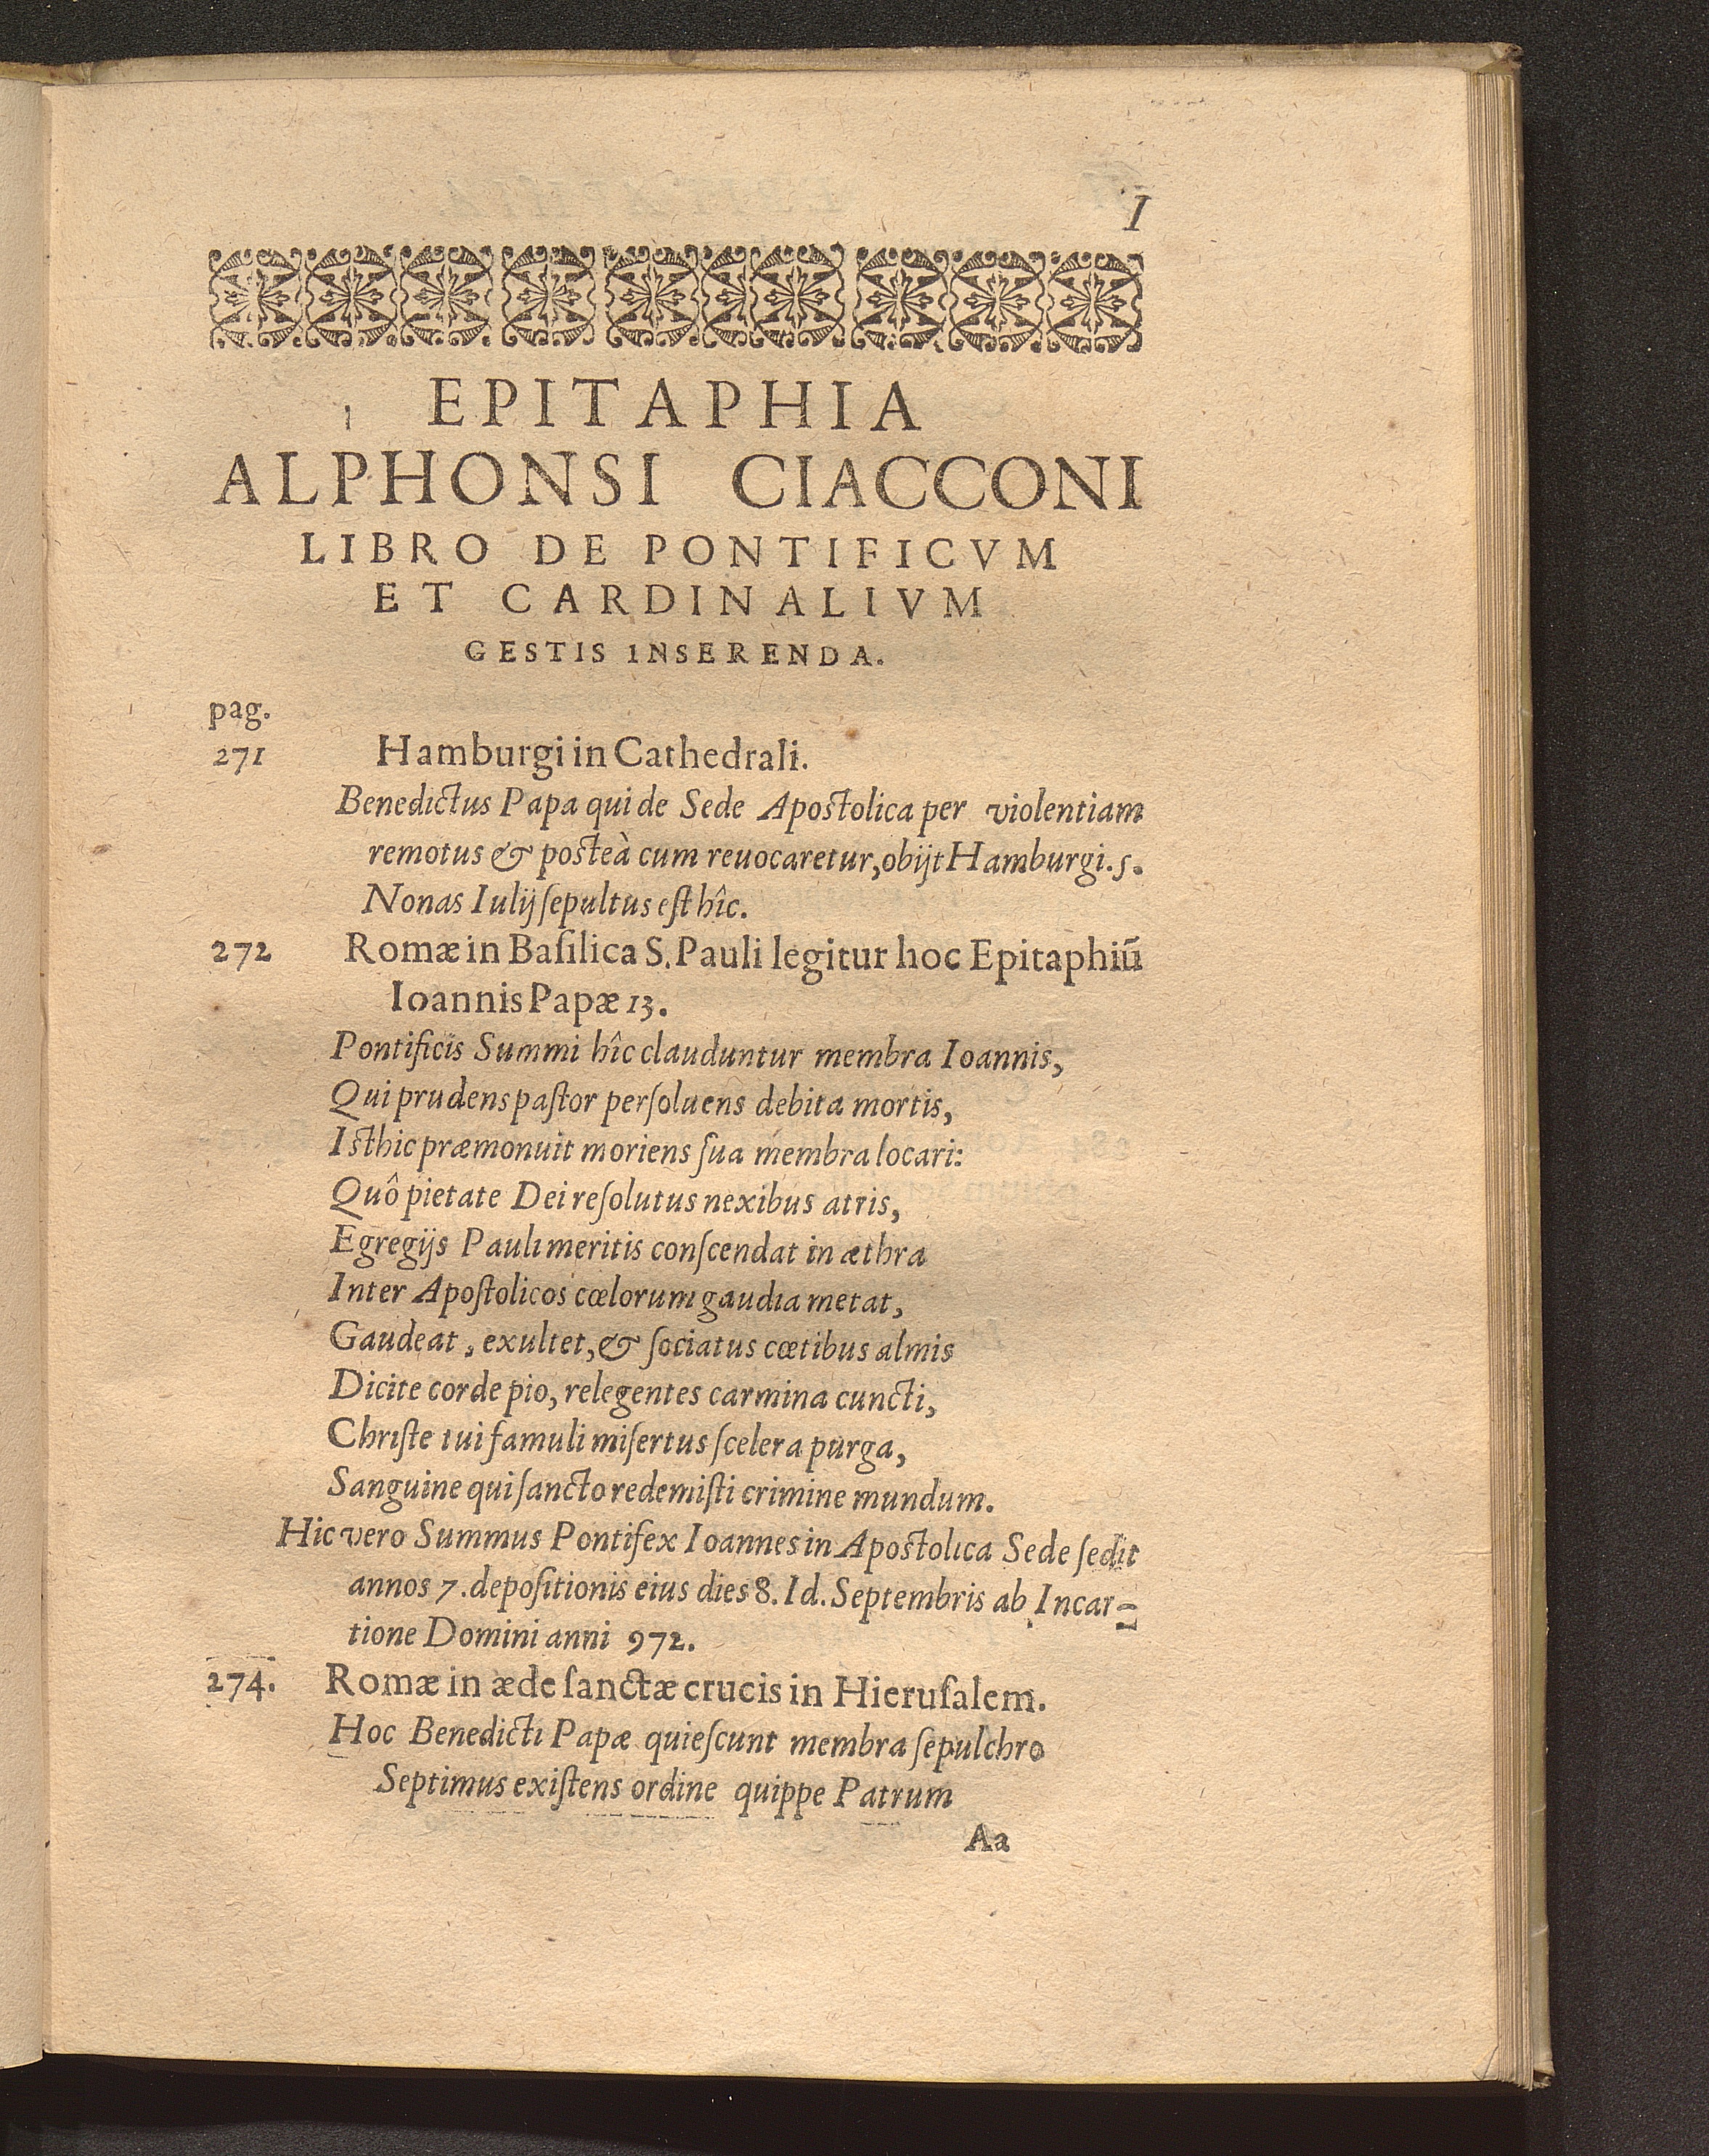 I
EPITAPHIA
ALPHONSI CIACCONI
LIBRO DE PONTIFICVM
ET CARDINALIVM
GESTIS INSERENDA.
pag.
271 Hamburgi in Cathedrali.
Benedictus Papa qui de Sede Apostolica per violentiam
remotus & posteà cum reuocaretur, obijt Hamburgi. 5.
Nonas Iulij ſepultus eſt hîc.
272 Romæ in Baſilica S. Pauli legitur hoc Epitaphiū
Ioannis Papæ 13.
Pontificis Summi hîc clauduntur membra Ioannis,
Qui prudens paſtor perſoluens debita mortis,
Isthic præmonuit moriens ſua membra locari:
Quô pietate Dei reſolutus nexibus atris,
Egregijs Pauli meritis conſcendat in æthra
Inter Apoſtolicos cœlorum gaudia metat,
Gaudeat, exultet, & ſociatus cœtibus almis
Dicite corde pio, relegentes carmina cuncti,
Chriſte tui famuli miſertus ſcelera purga,
Sanguine qui ſancto redemiſti crimine mundum.
Hic vero Summus Pontifex Ioannes in Apostolica Sede ſedit
annos 7. depoſitionis eius dies 8. Id. Septembris ab Incar-
tione Domini anni 972.
274. Romæ in æde ſanctæ crucis in Hieruſalem.
Hoc Benedicti Papæ quieſcunt membra ſepulchro
Septimus exiſtens ordine quippe Patrum
Aa